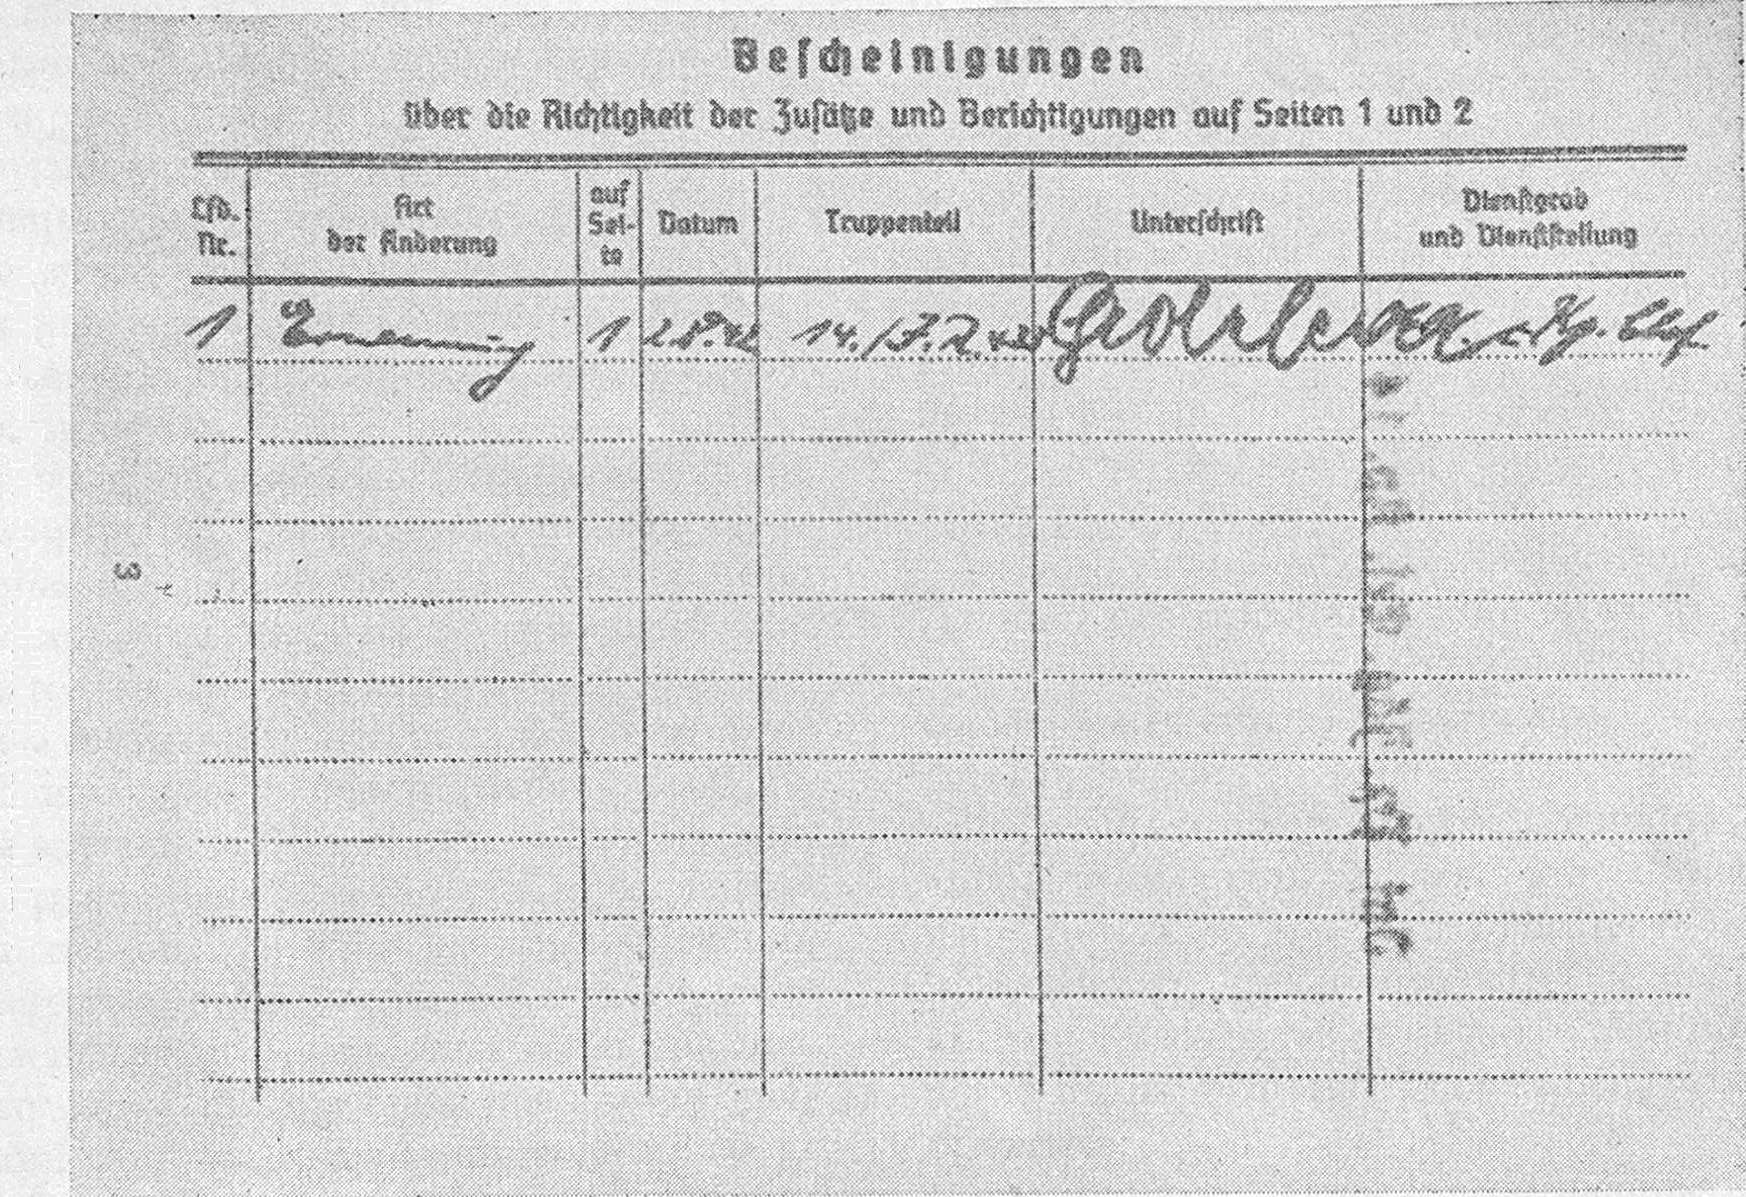 Bescheinigungen
über die Richtigkeit der Zusätze und Berichtigungen auf Seiten 1 und 2
Lfd. Nr.
Art der Änderung
auf Sei-te
Datum
Truppenteil
Unterschrift
Dienstgrad und Dienststellung
1 Ernennung 1 14./J.R.
3